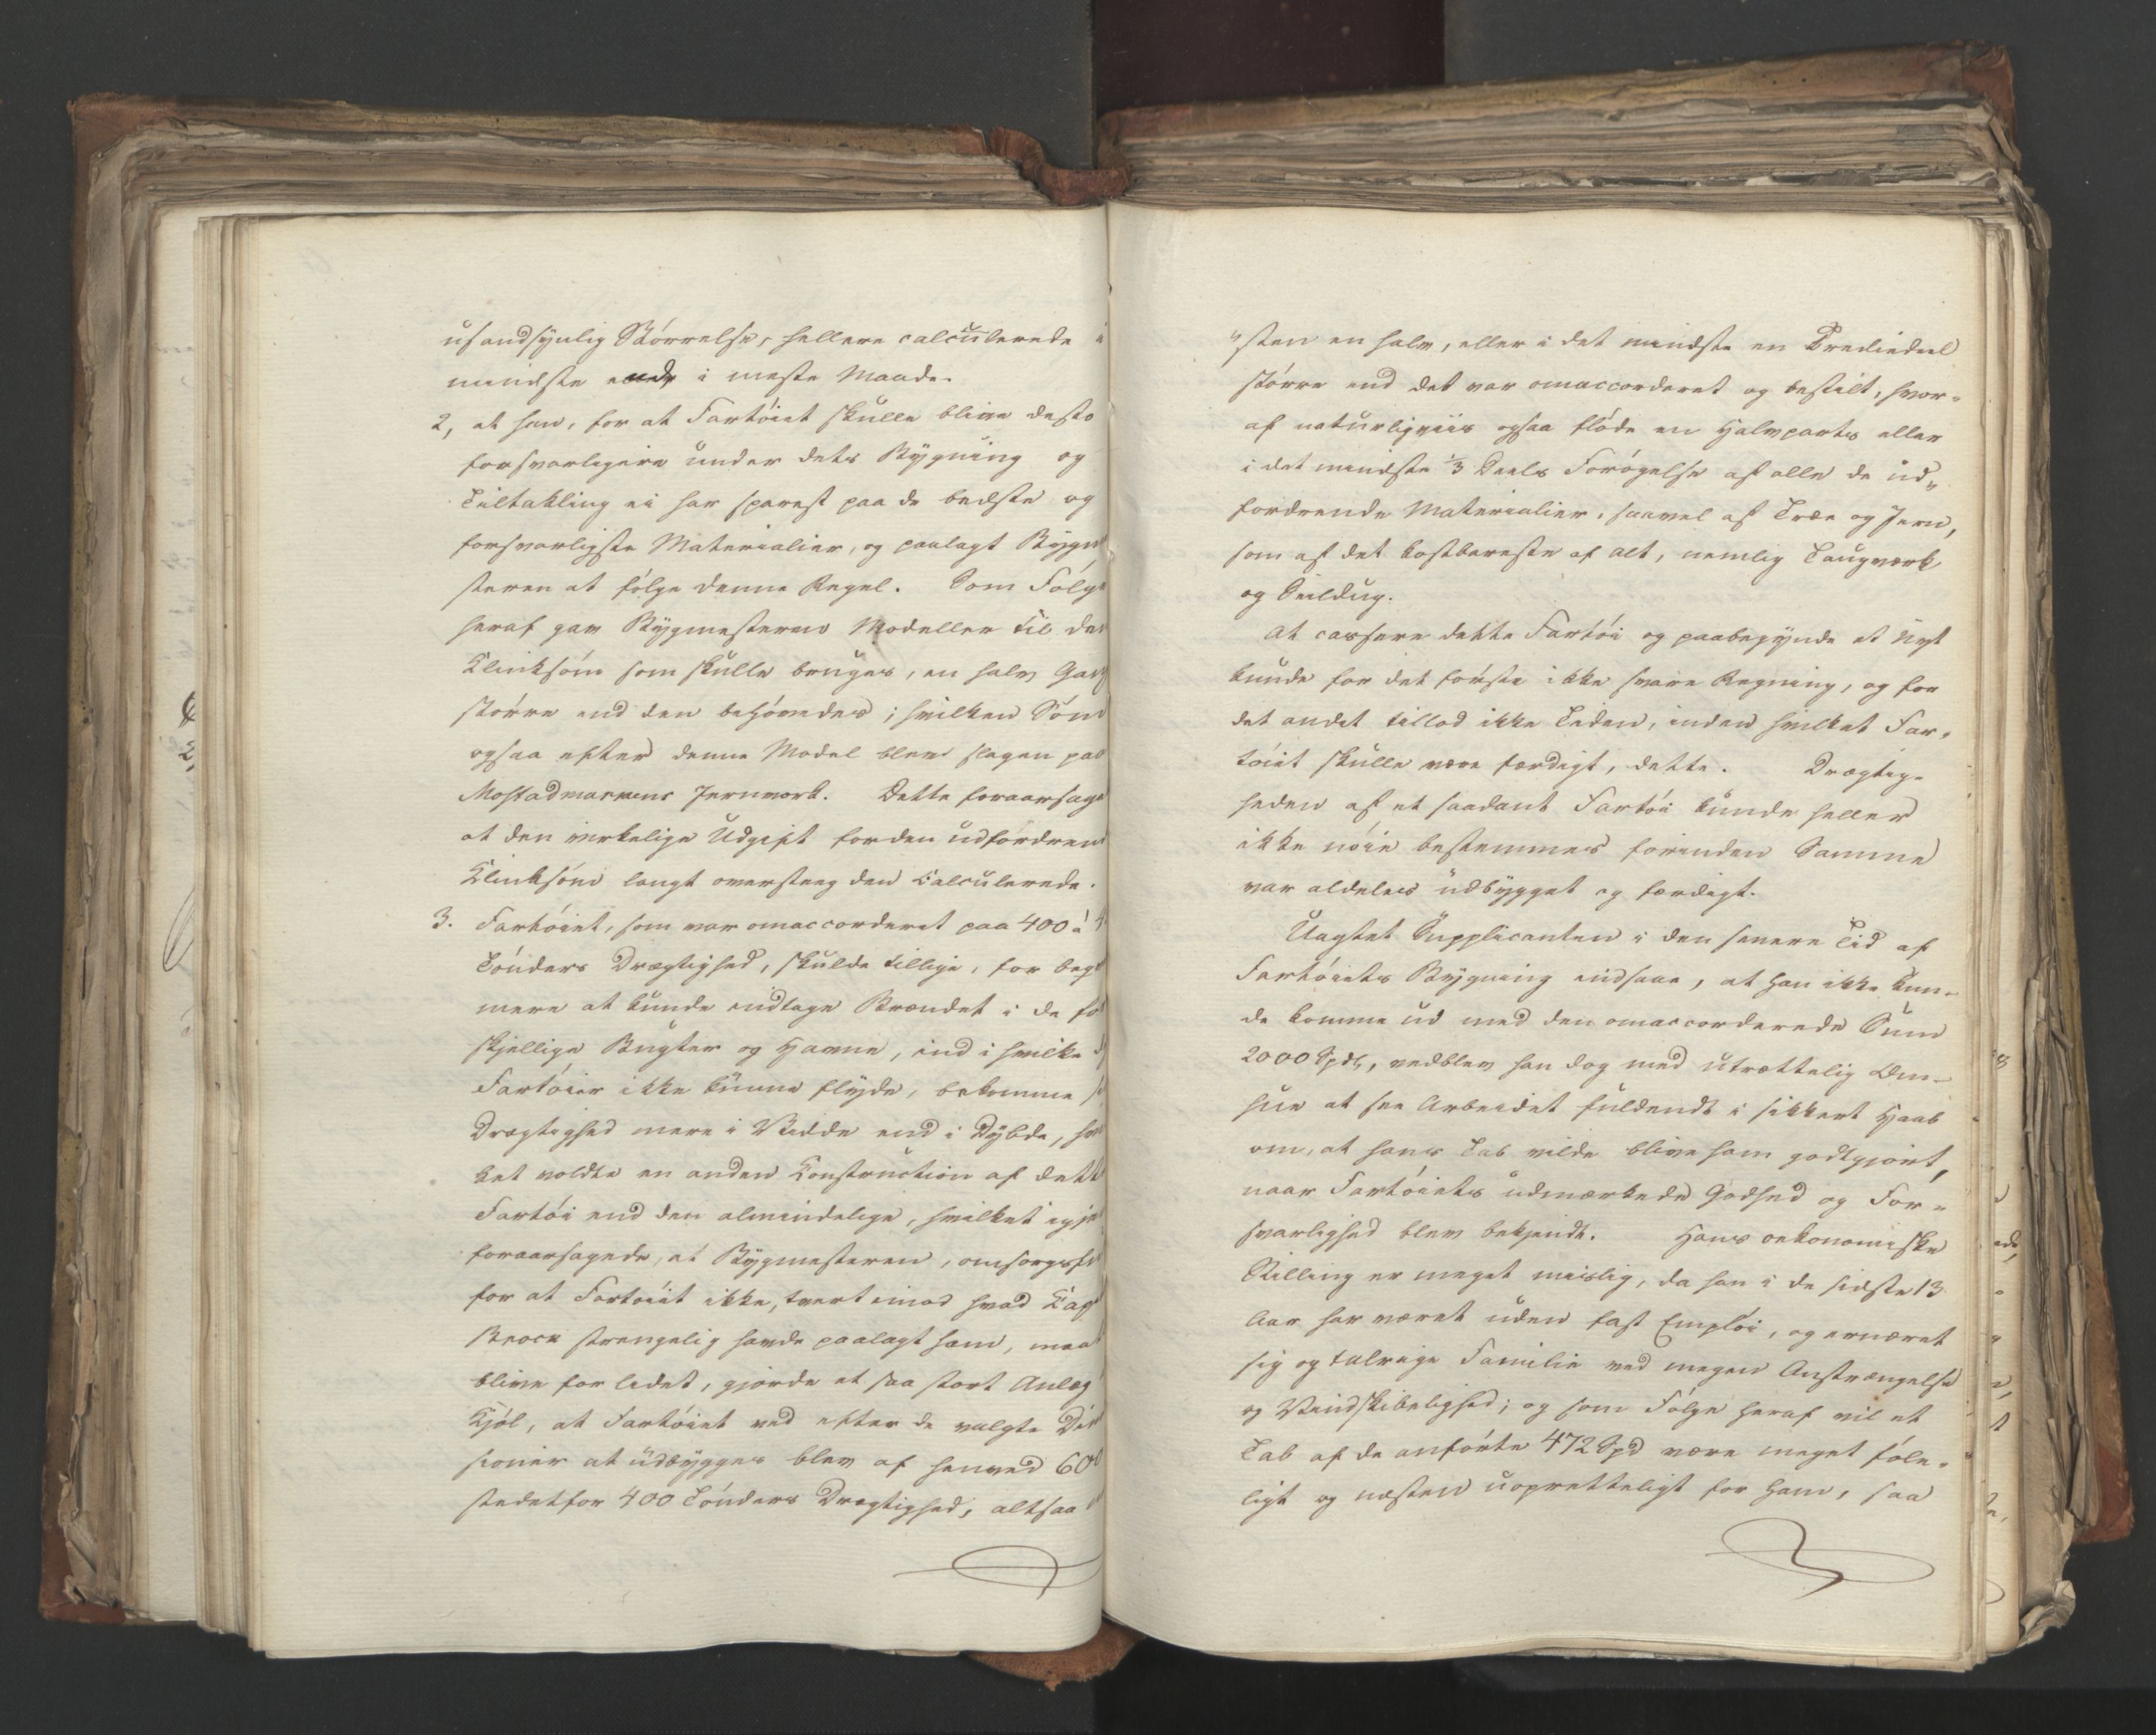 usandsynlig Störrelse, hellere calculerede i
mindste end i meste Maade.
2, at han, for at Fartöiet skulle blive desto
forsvarligere under dets Bygning og
Tiltakling ei har sparet paa de bedste og
forsvarligste Materialier, og paalagt Bygme
steren at fölge denne Regel. Som Fölge
heraf gav Bygmesteren Modeller til den
Klinksöm som skulle bruges, en halv Gang
större end den behövedes; hvilken Söm
ogsaa efter denne Model blev slagen paa
Mostadmarkens Jernverk. Dette foraarsage
at den virkelige Udgift for den udfordrende
Klinksöm langt oversteeg den Calculerede.
3. Fartöiet, som var omaccorderet paa 400 à 4
Tönders Drægtighed, skulde tillige, for beqve
mere at kunde indtage Brændet i de for
skjellige Bugter og Havne, ind i hvilke
Fartöier ikke kunne flyde, bekomme
Drægtighed mere i Vidde end i Dybde, hvil
ket voldte en anden Construction af dette
Fartöi end den almindelige, hvilket igjen
foraarsagede, at Bygmesteren, omsorgsfuld
for at Fartöiet ikke, tvert imod hvad Cap
Brock strengelig havde paalagt ham, maatte
blive for lidet, gjorde et saa stort Anlæg
Kjöl, at Fartöiet ved efter de valgte Dimen
sioner at udbygges blev af henved 600
stedetfor 400 Tönders Drægtighed, altsaa
"sten en halv, eller i det mindste en Trediedeel
större end det var omaccorderet og bestilt, hvor-
af naturligviis ogsaa flöde en Halvparts eller
i det mindste 1/3 Deels Forögelse af alle de ud-
fordrende Materialier, saavel af Træe og Jern,
som af det kostbareste af alt, nemlig Taugverk
og Seildug.
At cassere dette Fartöi og paabegynde et Nyt
kunde for det förste ikke svare Regning, og for
det andet tillod ikke Tiden, inden hvilket Far-
töiet skulle være færdigt, dette. Drægtig-
heden af et saadant Fartöi kunde heller
ikke nöie bestemmes forinden Samme
var aldeles udbygget og færdigt.
Uagtet Supplicanten i den senere Tid af
Fartöiets Bygning indsaae, at han ikke kun-
de komme ud med den omaccorderede Sum
2000 Spdlr, vedblev han dog med utrættelig Om-
hue at see Arbeidet fuldendt i sikkert Haab
om, at hans Tab vilde blive ham godtgjort,
naar Fartöiets udmærkede Godhed og For-
svarlighed blev bekjendt. Hans oekonomiske
Stilling er meget mislig, da han i de sidste 13
Aar har været uden fast Emploi, og ernæret
sig og talrige Familie ved megen Anstrængelse
og Vindskibelighed; og som Fölge heraf vil et
Tab af de anförte 472 Spd være meget föle-
ligt og næsten uopretteligt for ham, saa